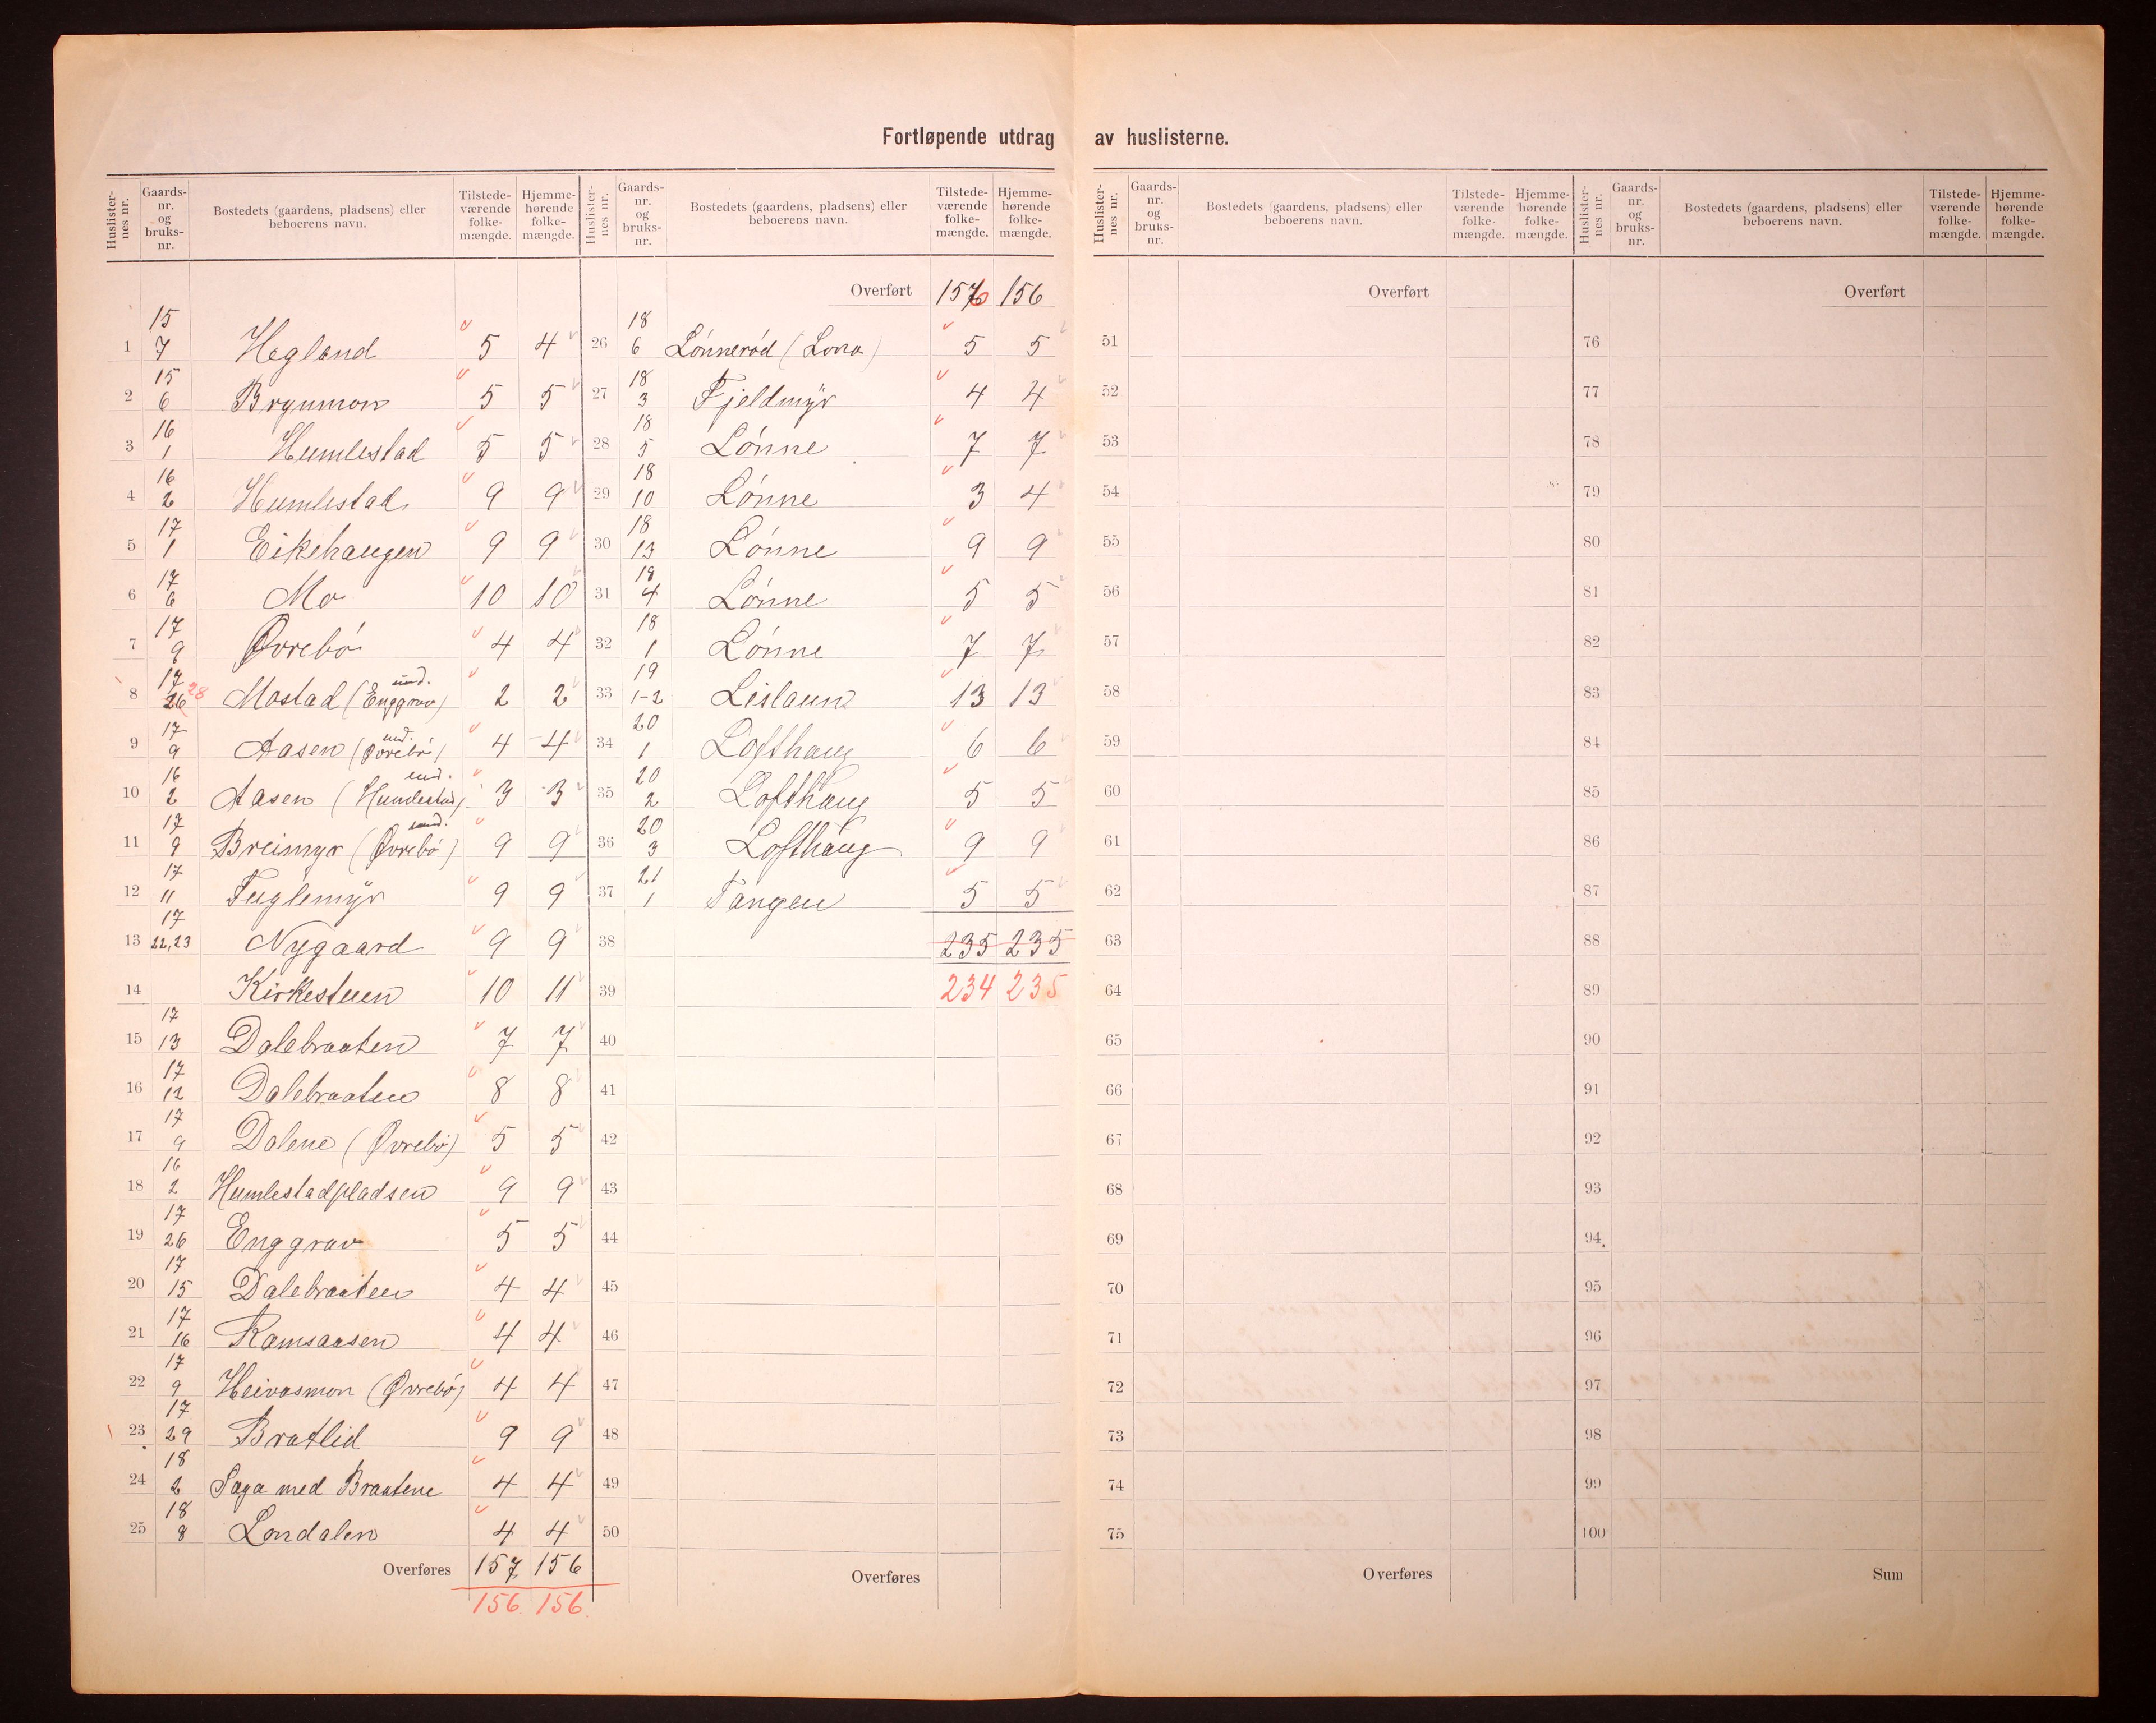 Fortløpende utdrag av huslisterne.
Huslisternes nr. Gaardsnr. og bruksnr. Bostedets (gaardens, pladsens) eller beboerens navn. Tilstedeværende folkemængde. Hjemmehørende folkemængde.
Huslisternes nr. Gaardsnr. og bruksnr. Bostedets (gaardens, pladsens) eller beboerens navn. Tilstedeværende folkemængde. Hjemmehørende folkemængde.
Huslisternes nr. Gaardsnr. og bruksnr. Bostedets (gaardens, pladsens) eller beboerens navn. Tilstedeværende folkemængde. Hjemmehørende folkemængde.
Huslisternes nr. Gaardsnr. og bruksnr. Bostedets (gaardens, pladsens) eller beboerens navn. Tilstedeværende folkemængde. Hjemmehørende folkemængde.
1 15/7 Hegland 5 4
2 15/6 Brynmon 5 5
3 16/1 Humlestad 5 5
4 16/2 Humlestad 9 9
5 17/1 Eikehaugen 9 9
6 17/6 Mo 10 10
7 17/9 Øvrebø 4 4
8 17/26 28 Mostad (und. Enggrav) 2 2
9 17/9 Aasen (und. Øvrebö) 4 4
10 16/2 Aasen (und. Humlestad) 3 3
11 17/9 Breimyr (und. Øvrebö) 9 9
12 17/11 Fuglemyr 9 9
13 17/22,23 Nygaard 9 9
14 Kirkestuen 10 11
15 17/13 Dalebraaten 7 7
16 17/12 Dalebraaten 8 8
17 17/9 Dalene (Øvrebö) 5 5
18 16/2 Humlestadpladsen 9 9
19 17/26 Enggrav 5 5
20 17/15 Dalebraaten 4 4
21 17/16 Ramsaasen 4 4
22 17/9 Heivasmon (Øvrebö) 4 4
23 17/29 Bratlid 9 9
24 18/2 Saga med Braatene 4 4
25 18/8 Londalen 4 4
Overføres 157 156
156. 156.
Overført 156 156
26 18/6 Lönnerød (Lona) 5 5
27 18/3 Fjeldmyr 4 4
28 18/5 Lönne 7 7
29 18/10 Lönne 3 4
30 18/13 Lönne 9 9
31 18/4 Lönne 5 5
32 18/1 Lönne 7 7
33 19/1-2 Lislaun 13 13
34 20/1 Lofthaug 6 6
35 20/2 Lofthaug 5 5
36 20/3 Lofthaug 9 9
37 21/1 Tangen 5 5
38 235 235
39 234 235
40
41
42
43
44
45
46
47
48
49
50
Overføres
Overført
51
52
53
54
55
56
57
58
59
60
61
62
63
64
65
66
67
68
69
70
71
72
73
74
75
Overføres
Overført
76
77
78
79
80
81
82
83
84
85
86
87
88
89
90
91
92
93
94
95
96
97
98
99
100
Sum